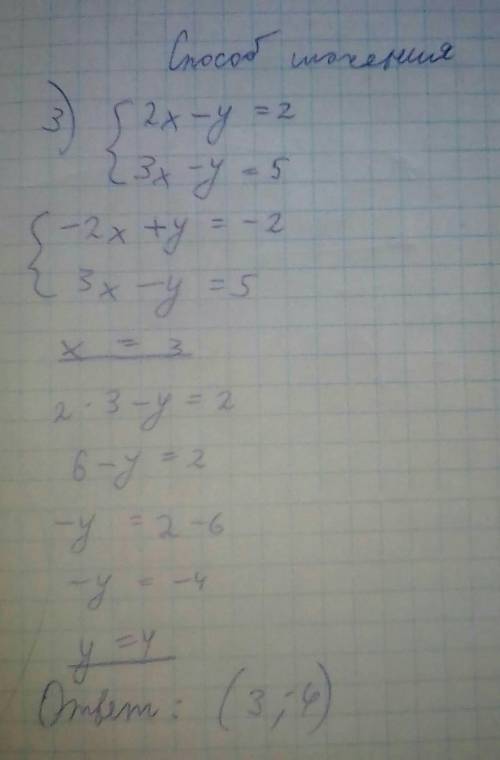 Способ сложения
3) { 2x - y = 2
3x - y = 5
{ -2x + y = -2
3x - y = 5
x = 3
2 · 3 - y = 2
6 - y = 2
-y = 2 - 6
-y = -4
y = 4
Ответ: (3; -4)